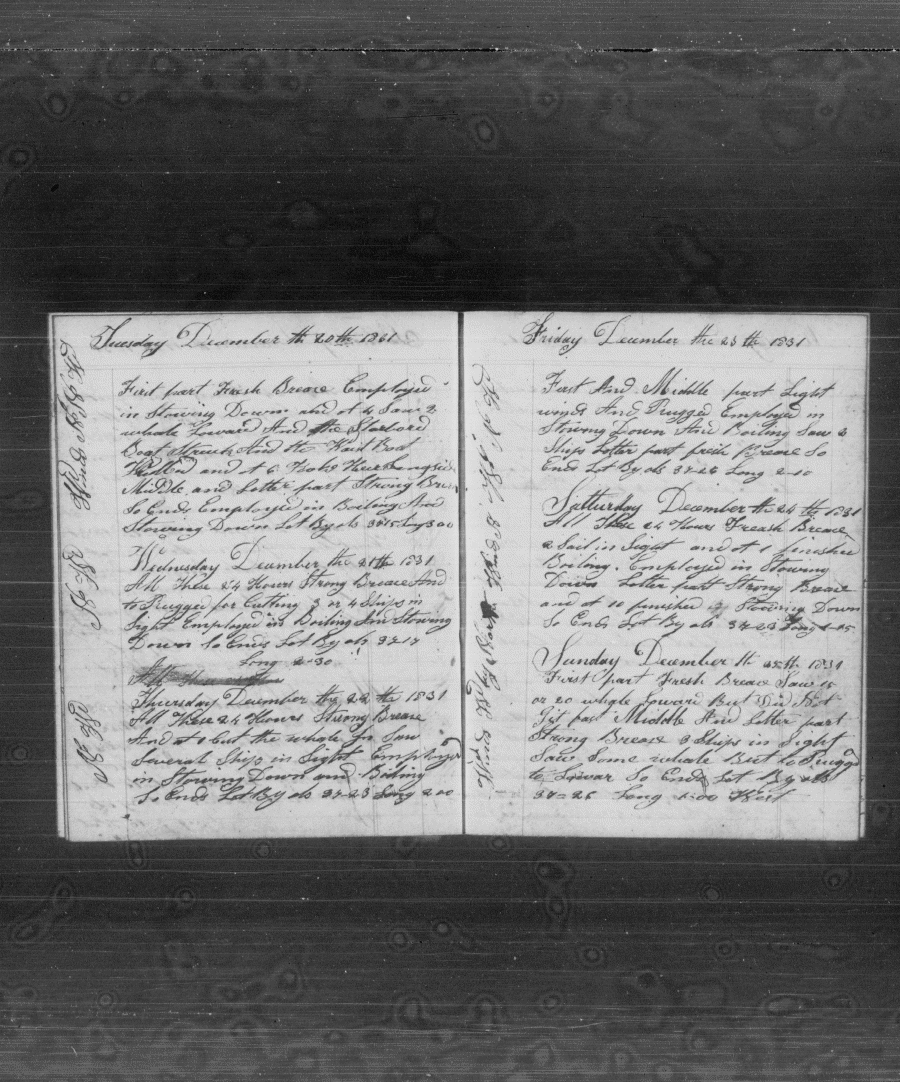 Tuesday December th 20th 1831
First part Fresh Brease Employed
in Stowing Down and at 4 Saw 2
whale Loward And the Starbord
Boat Struck And the Waist Boat
Killed and at 6 Took Her Longside
Middle and Latter part Strong Breas
So Ends Employed in Boiling And
Stowing Down Lat By obs 37=15 Long 3 00
Wednesday December the 21th 1831
All These 24 Hours Strong Brease And
to Rugged for Cutting 3 or 4 Ships in
Sight Employed in Boiling And Stowing
Down So Ends Lat By obs 37=17
Long 2=30
All These
Thursday December the 22 th 1831
All These 24 Hours Strong Brease
And at 1 Cut the whale In Saw
Several Ships in Sight Employed
in Stowing Down and Boiling
So Ends Lat By obs 37=23 Long 2 00
Friday December the 23 th 1831
First And Middle part Light
winds And Rugged Employed in
Stowing Down And Boiling Saw 2
Ships Latter part fresh Brease So
Ends Lat By obs 37=26 Long 2=10
Satturday December the 24 th 1831
All These 24 Hours Freash Brease
2 Sail in Sight and at 1 fineshed
Boiling. Employed in Stowing
Down Latter part Strong Brease
and at 10 finished Stowing Down
So Ends Lat By obs 37=23 Long 1=15
Sunday December th 25th 1831
First part Fresh Brease Saw 15
or 20 whale Loward But Did Not
Git fast Middle And Latter part
Strong Brease 3 Ships in Sight
Saw Some whale But to Rugged
to Lowar So Ends Lat By obs
37=26 Long 1=00 West